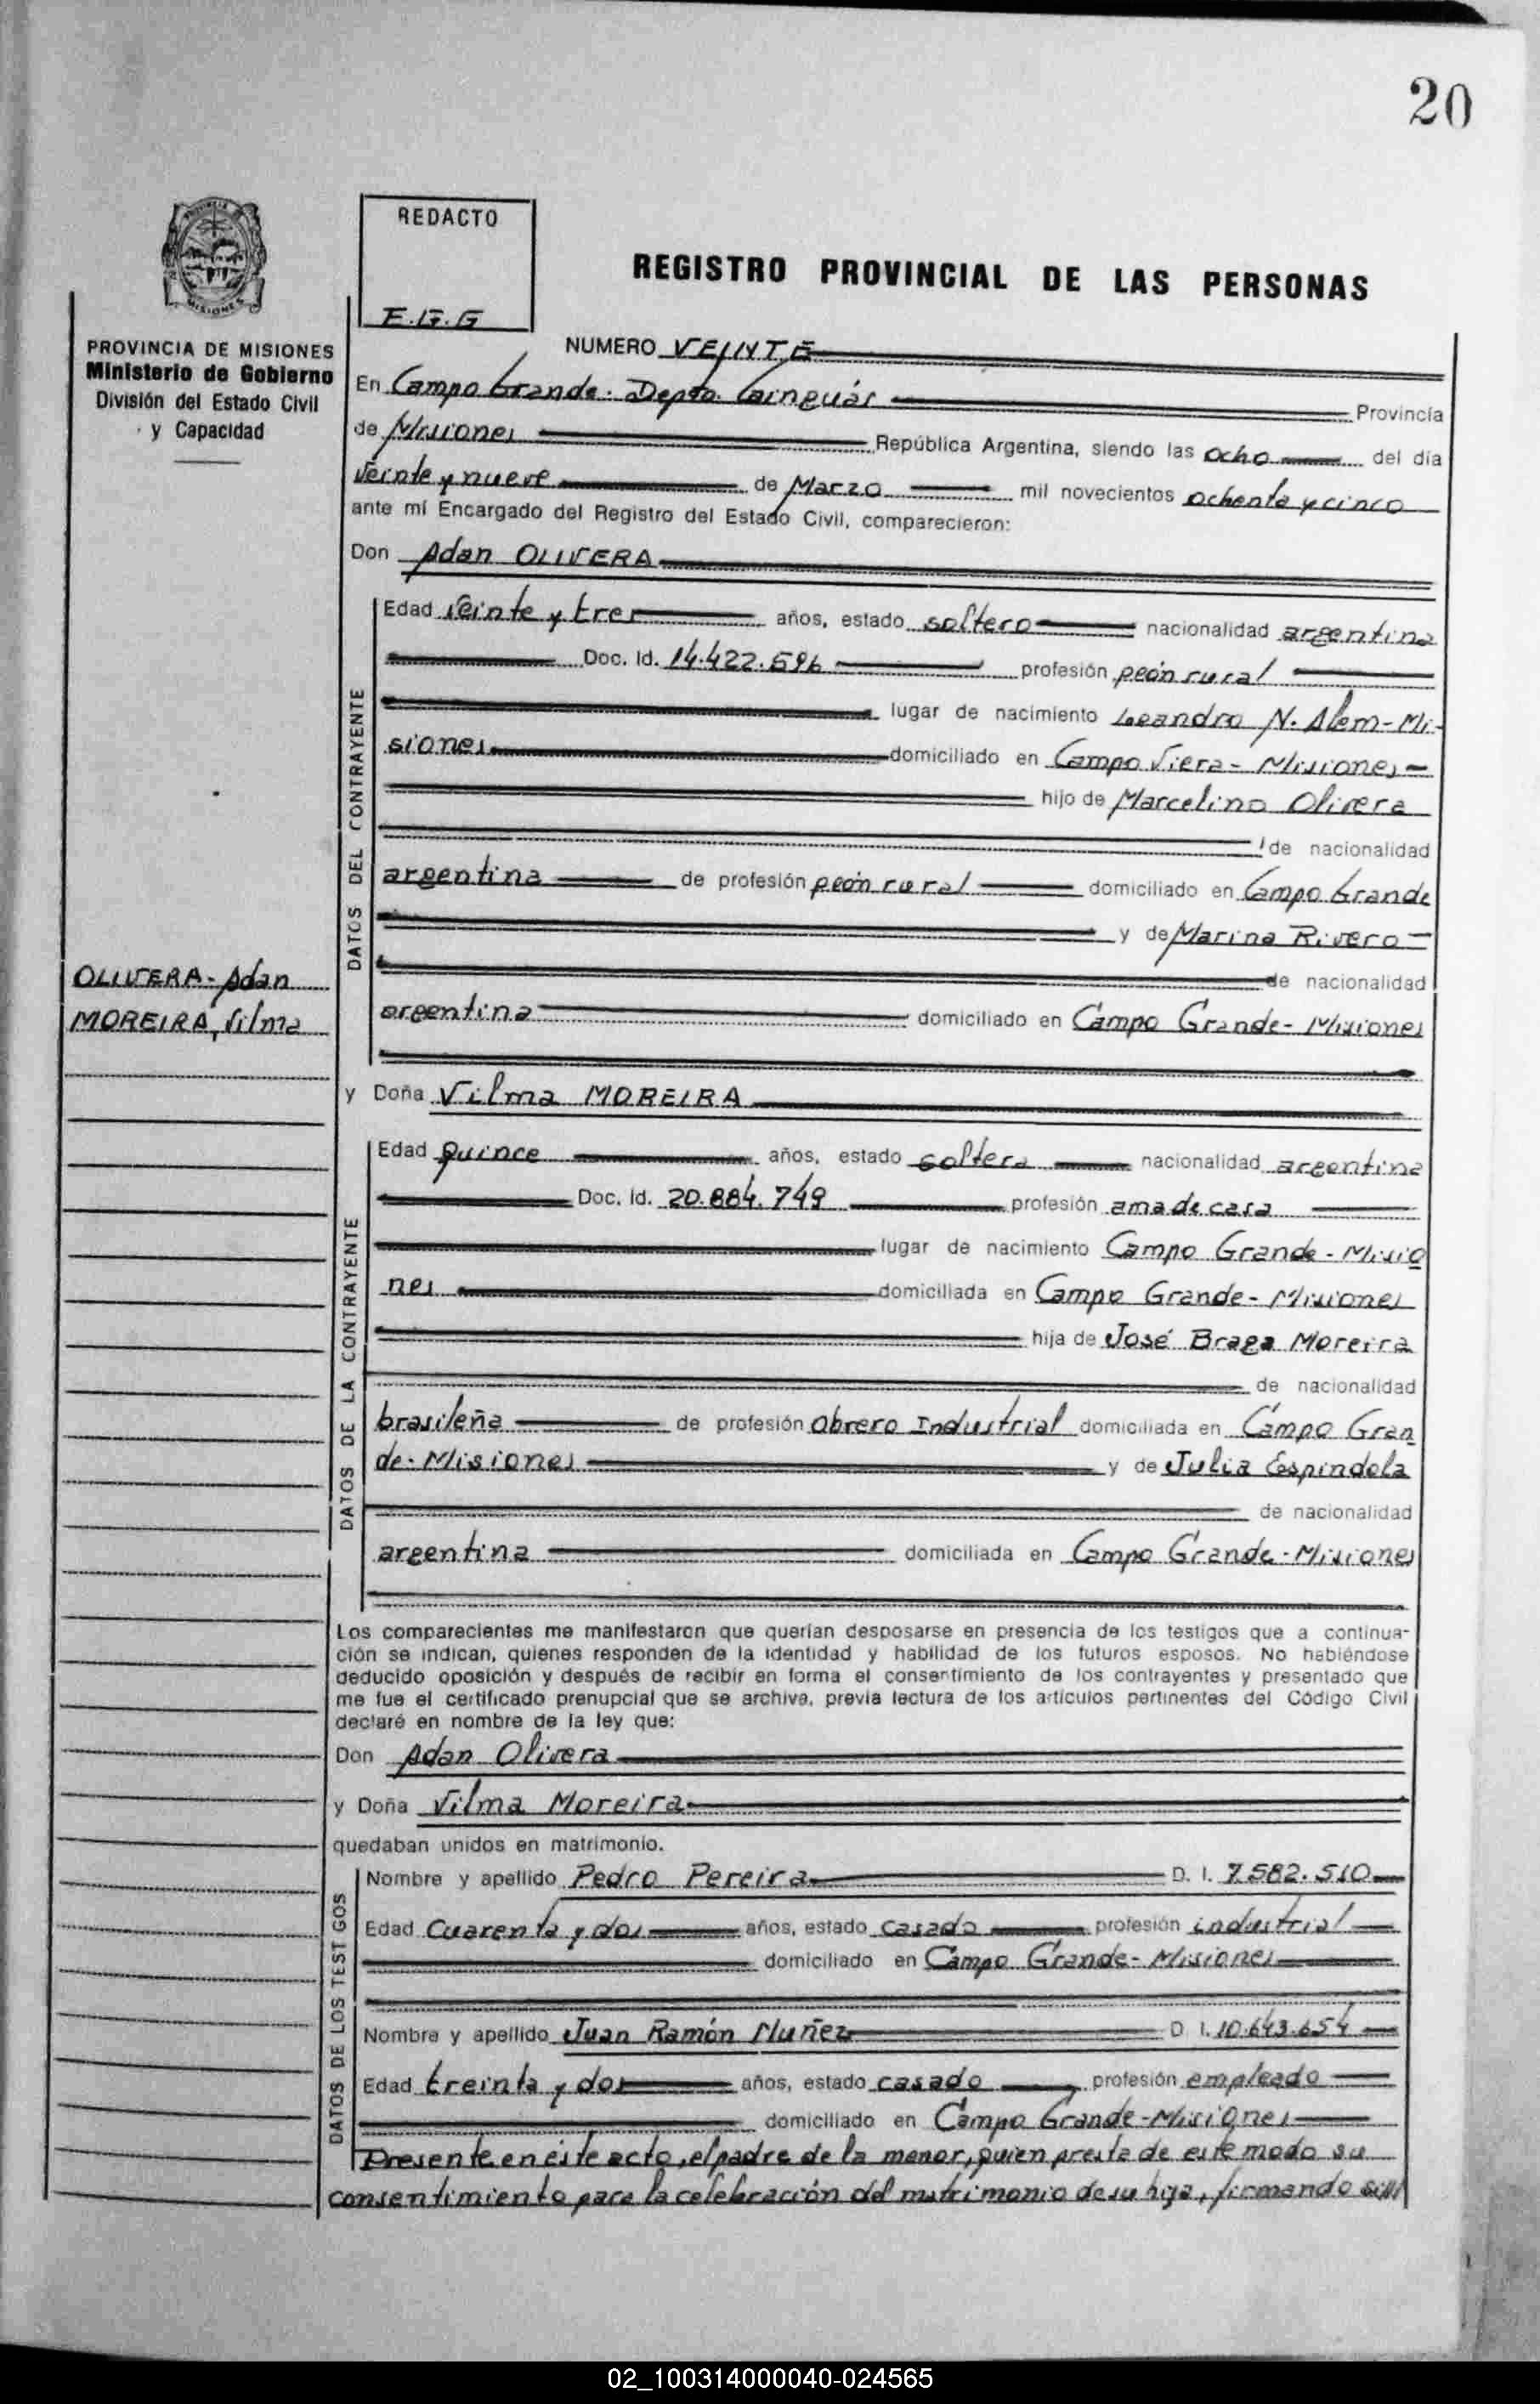 20
REDACTO
E.G.G
REGISTRO PROVINCIAL DE LAS PERSONAS
PROVINCIA DE MISIONES
Ministerio de Gobierno
División del Estado Civil
y Capacidad
NUMERO VEINTE
En Campo Grande. Depto. Cainguás Provincia
de Misiones República Argentina, siendo las ocho del día
veinte y nueve de Marzo mil novecientos ochenta y cinco
ante mí Encargado del Registro del Estado Civil, comparecieron:
Don Adan OLIVERA
Edad veinte y tres años, estado soltero nacionalidad argentina
Doc. Id. 14.422.596 profesión peón rural
lugar de nacimiento Leandro N. Alem-Mi-
siones domiciliado en Campo Viera - Misiones -
hijo de Marcelino Olivera
de nacionalidad
argentina de profesión peón rural domiciliado en Campo Grande
y de Marina Rivero
de nacionalidad
argentina domiciliado en Campo Grande - Misiones
DATOS DEL CONTRAYENTE
OLIVERA - Adan
MOREIRA, Vilma
y Doña Vilma MOREIRA
Edad quince años, estado soltera nacionalidad argentina
Doc. Id. 20.884.749 profesión ama de casa
lugar de nacimiento Campo Grande - Misio
nes domiciliada en Campo Grande - Misiones
hija de José Braga Moreira
de nacionalidad
brasileña de profesión Obrero Industrial domiciliada en Campo Gran
de - Misiones y de Julia Espindola
de nacionalidad
argentina domiciliada en Campo Grande - Misiones
DATOS DE LA CONTRAYENTE
Los comparecientes me manifestaron que querían desposarse en presencia de los testigos que a continua-
ción se indican, quienes responden de la identidad y habilidad de los futuros esposos. No habiéndose
deducido oposición y después de recibir en forma el consentimiento de los contrayentes y presentado que
me fue el certificado prenupcial que se archiva, previa lectura de los artículos pertinentes del Código Civil
declaré en nombre de la ley que:
Don Adan Olivera
y Doña Vilma Moreira
quedaban unidos en matrimonio.
Nombre y apellido Pedro Pereira D. I. 7.582.510
Edad Cuarenta y dos años, estado casado profesión industrial
domiciliado en Campo Grande - Misiones
Nombre y apellido Juan Ramón Nuñez D. I. 10.643.654
Edad treinta y dos años, estado casado profesión empleado
domiciliado en Campo Grande - Misiones
DATOS DE LOS TESTIGOS
Presente en este acto, el padre de la menor, quien presta de este modo su
consentimiento para la celebración del matrimonio de su hija, firmando
02_100314000040-024565